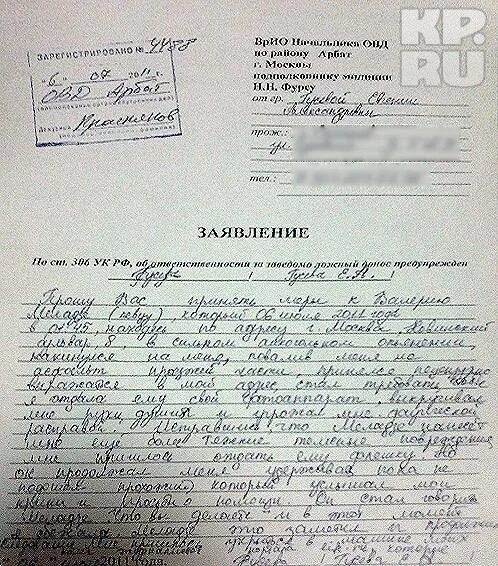 KP.
RU
ЗАРЕГИСТРИРОВАНО № 4488
"6" 07 2011 г.
ОВД Арбат
Дежурный Краснянов
ВрИО Начальника ОВД
по району Арбат
г. Москвы
подполковнику милиции
Н.Н. Фурсу
от гр. Гусевой Евгении
Александровны
прож.:
тел.:
ЗАЯВЛЕНИЕ
По ст. 306 УК РФ, об ответственности за заведомо ложный донос предупрежден
/ Гусева Е.А. /
Прошу Вас принять меры к Валерию
Меладзе (певцу), который 06 июля 2011 года
в 01.45, находясь по адресу г. Москва, Новинский
бульвар, 8 в сильном алкогольном опьянении,
накинулся на меня, повалив меня на
асфальт проезжей части, принялся нецензурно
выражаться в мой адрес, стал требовать чтобы
я отдала ему свой фотоаппарат, выкручивал
мне руки, душил и угрожал мне физической
расправой. Испугавшись, что Меладзе нанесет
мне еще более тяжкие телесные повреждения,
мне пришлось отдать ему флешку. Но
он продолжал меня удерживать пока не
подошел прохожий который услышал мои
крики и просьбы помощи. Он стал говорить
Меладзе: Что вы делаете и в этот момент
Меладзе это заметил и
в машине
2011 года.